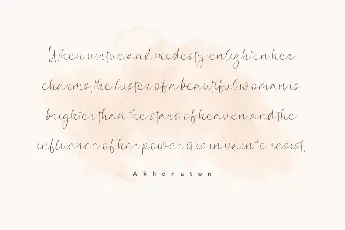 When virtue and modesty enlighten her
charms, the luster of a beautiful woman is
brighter than the stars of heaven and the
influence of her power it is in vain to resist.
Akheraton